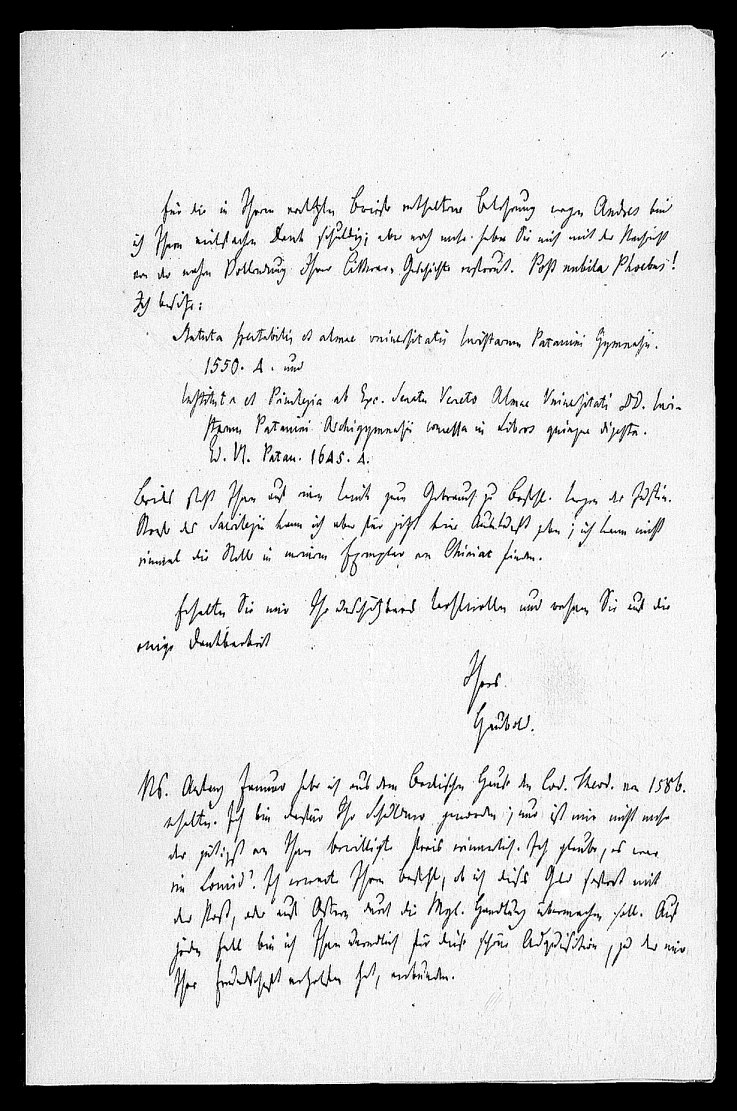 für die in Ihrem letzten Briefe enthaltene Belehrung wegen Andres bin
ich Ihnen vielfachen Dank schuldig; aber noch mehr haben Sie mich mit der Nachricht
von der nahen Vollendung Ihrer Litterär Geschichte erfreut. Post nubila Phoebus!
Ich besitze:
Statuta spectabilis et almae universitatis Iuristarum Patavini Gymnasii.
1550. 4. und
Instituta et Privilegia ab Exc. Senatu Veneto Almae Universitati DD. Iuri-
starum Patavini Archigymnasii concessa in Libros quinque digesta.
Ed. VI. Patav. 1645. 4.
Beides steht Ihnen auf einen Wink zum Gebrauch zu Befehl. Wegen der Justin.
Strafe des Sacrilegii kann ich aber für jetzt keine Auskunft geben; ich kann nicht
einmal die Stelle in meinem Exemplar von Chiniac finden.
Erhalten Sie mir Ihr unschätzbares Wohlwollen und rechnen Sie auf die
ewige Dankbarkeit
Ihres
Haubold.
NS. Anfang Januar habe ich aus dem Beckischen Hause den Cod. Theod. von 1586.
erhalten. Ich bin dafür Ihr Schuldner geworden; nur ist mir nicht mehr
der gütigst von Ihnen bewilligte Preis erinnerlich. Ich glaube, es war
ein Louisd'. Ich erwarte Ihren Befehl, ob ich dieses Geld sofort mit
der Post, oder auf Ostern durch die Myl. Handlung übermachen soll. Auf
jeden Fall bin ich Ihnen unendlich für diese schöne Adquisition, zu der mir
Ihre Freundschaft verholfen hat, verbunden.